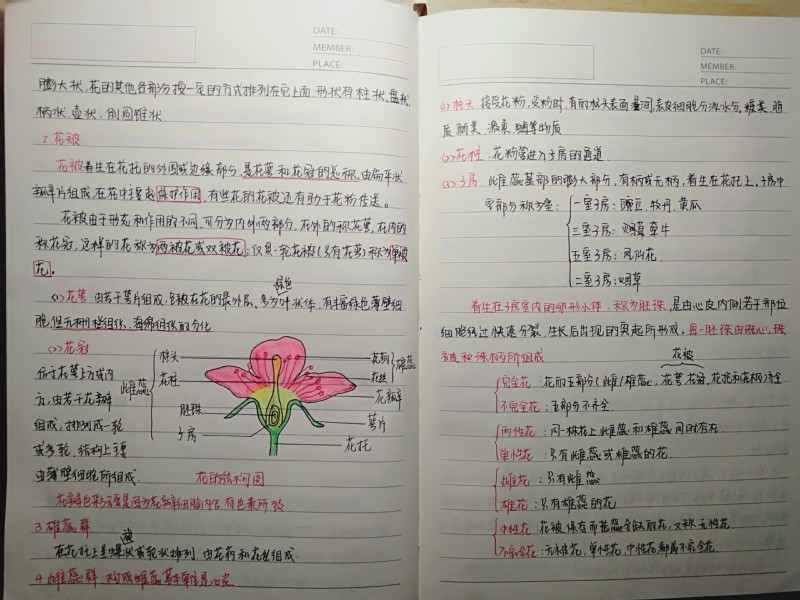 DATE:
MEMBER:
PLACE:
膨大状,花的其他各部分按一定的方式排列在它上面 形状有柱状、盘状、
柄状、壶状、倒圆锥状
2.花被
花被着生在花托的外围或边缘部分,是花萼和花冠的总称,由扁平状
瓣片组成,在花中主要起保护作用,有些花的花被还有助于花粉传送。
花被由于形态和作用的不同,可分为内外两部分,在外的称花萼,在内的
称花冠,这样的花称为两被花或双被花;仅具一轮花被(只有花萼)称为单被
花。
绿色
(1)花萼 由若干萼片组成,包被在花的最外层、多为叶状体,有丰富绿色薄壁细
胞,但无栅栏组织、海绵组织的分化
(2)花冠
位于花萼上方或内
方,由若干花瓣
组成,排列成一轮
或多轮,结构上主要
由薄壁细胞所组成.
雌蕊
柱头
花柱
胚珠
子房
花药
花丝
雄蕊
花瓣
萼片
花托
花的结构图
花瓣色彩主要是因为花瓣细胞内含有色素所致
3.雄蕊群
在花托上呈螺旋状或轮状排列 由花药和花丝组成.
4.雌蕊群 构成雌蕊基本单位是心皮
DATE:
MEMBER:
PLACE:
(1)柱头 接受花粉,受粉时,有的柱头表面湿润,表皮细胞分泌水分、糖类、脂
质、酚类、激素、酶等物质
(2)花柱 花粉管进入子房的通道
(3)子房 雌蕊基部的膨大部分,有柄或无柄,着生在花托上,子房中
一室子房:豌豆、牡丹、黄瓜
三室子房:
五室子房:凤仙花.
二室子房:烟草
着生在子房室内的卵形小体,称为胚珠,是由心皮内侧若干部位
细胞经过快速分裂、生长后出现的突起所形成,每一胚珠由珠心、珠
被和珠柄所组成
花被
完全花:花的五部分(雌/雄蕊、花萼、花冠、花托和花柄)齐全
不完全花:五部分不齐全
两性花:同一株花上雌蕊和雄蕊同时存在
单性花:只有雌蕊或雄蕊的花.
雌花:只有雌蕊
雄花:只有雄蕊的花
中性花:花被保存而蕊全缺的花,又称无性花
不完全花:无被花,单性花,中性花都属不完全花.